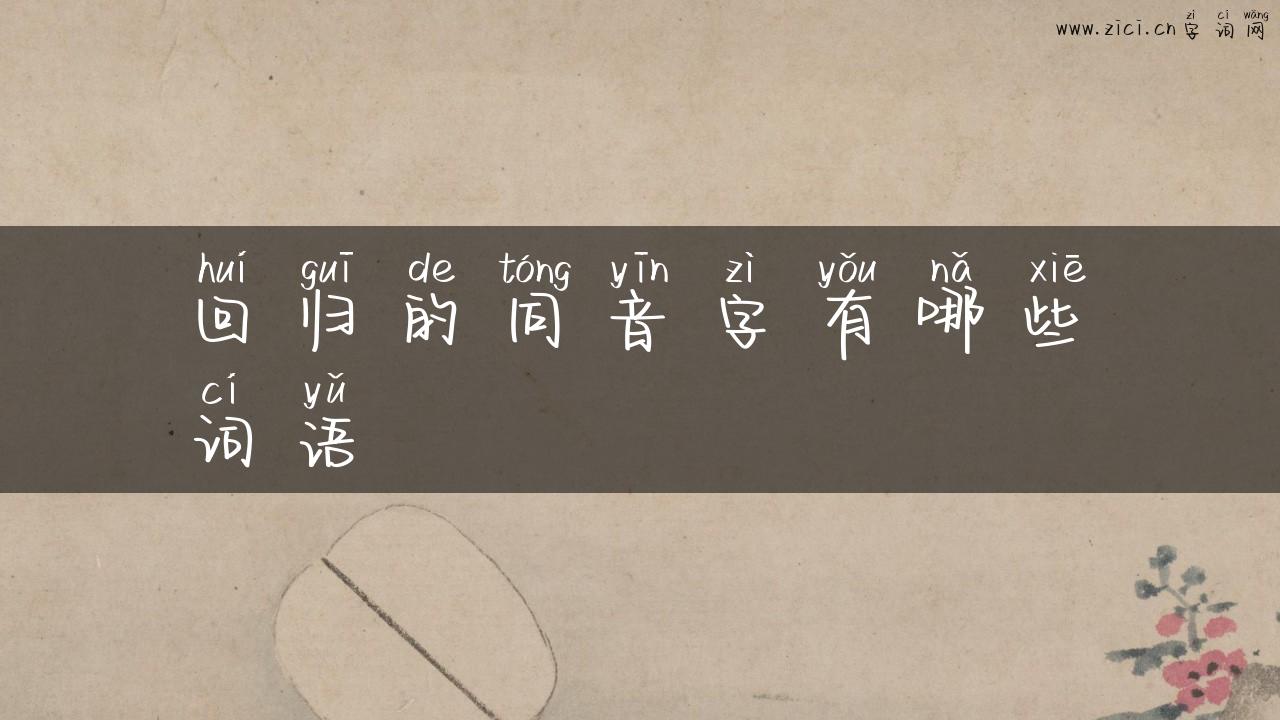 zì cí wǎng
www.zici.cn 字词网
huí guī de tóng yīn zì yǒu nǎ xiē
回归的同音字有哪些
cí yǔ
词语